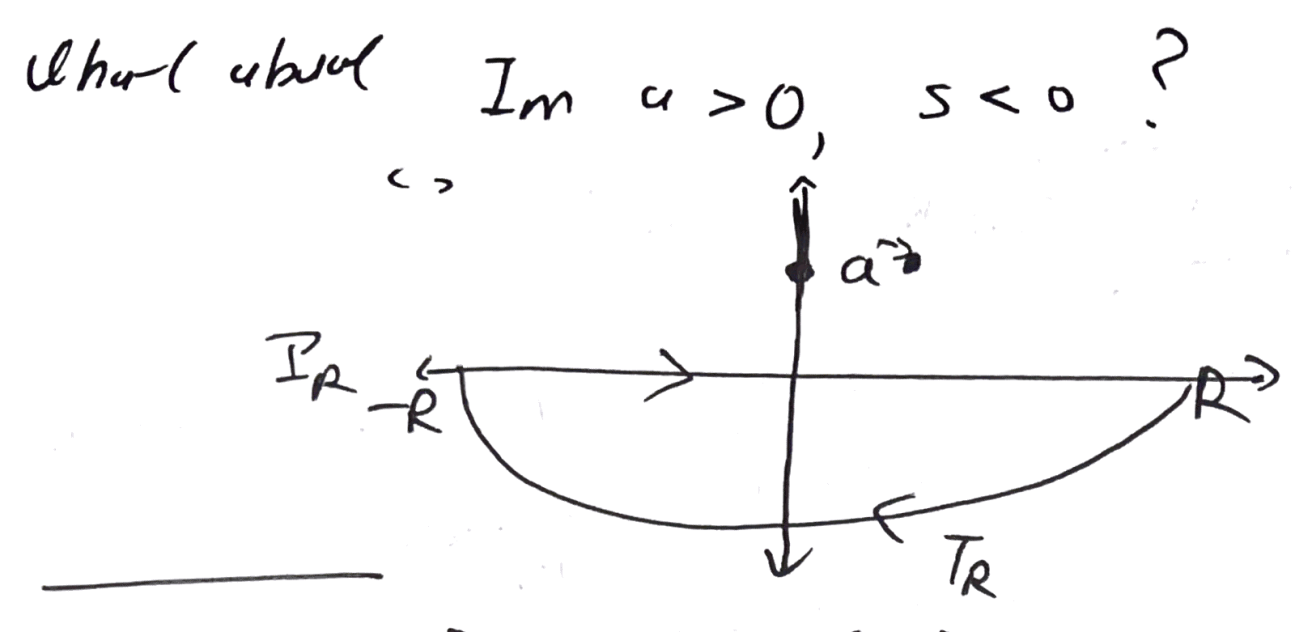 What about Im a > 0, s < 0 ?
< >
a
I_R -R R
T_R